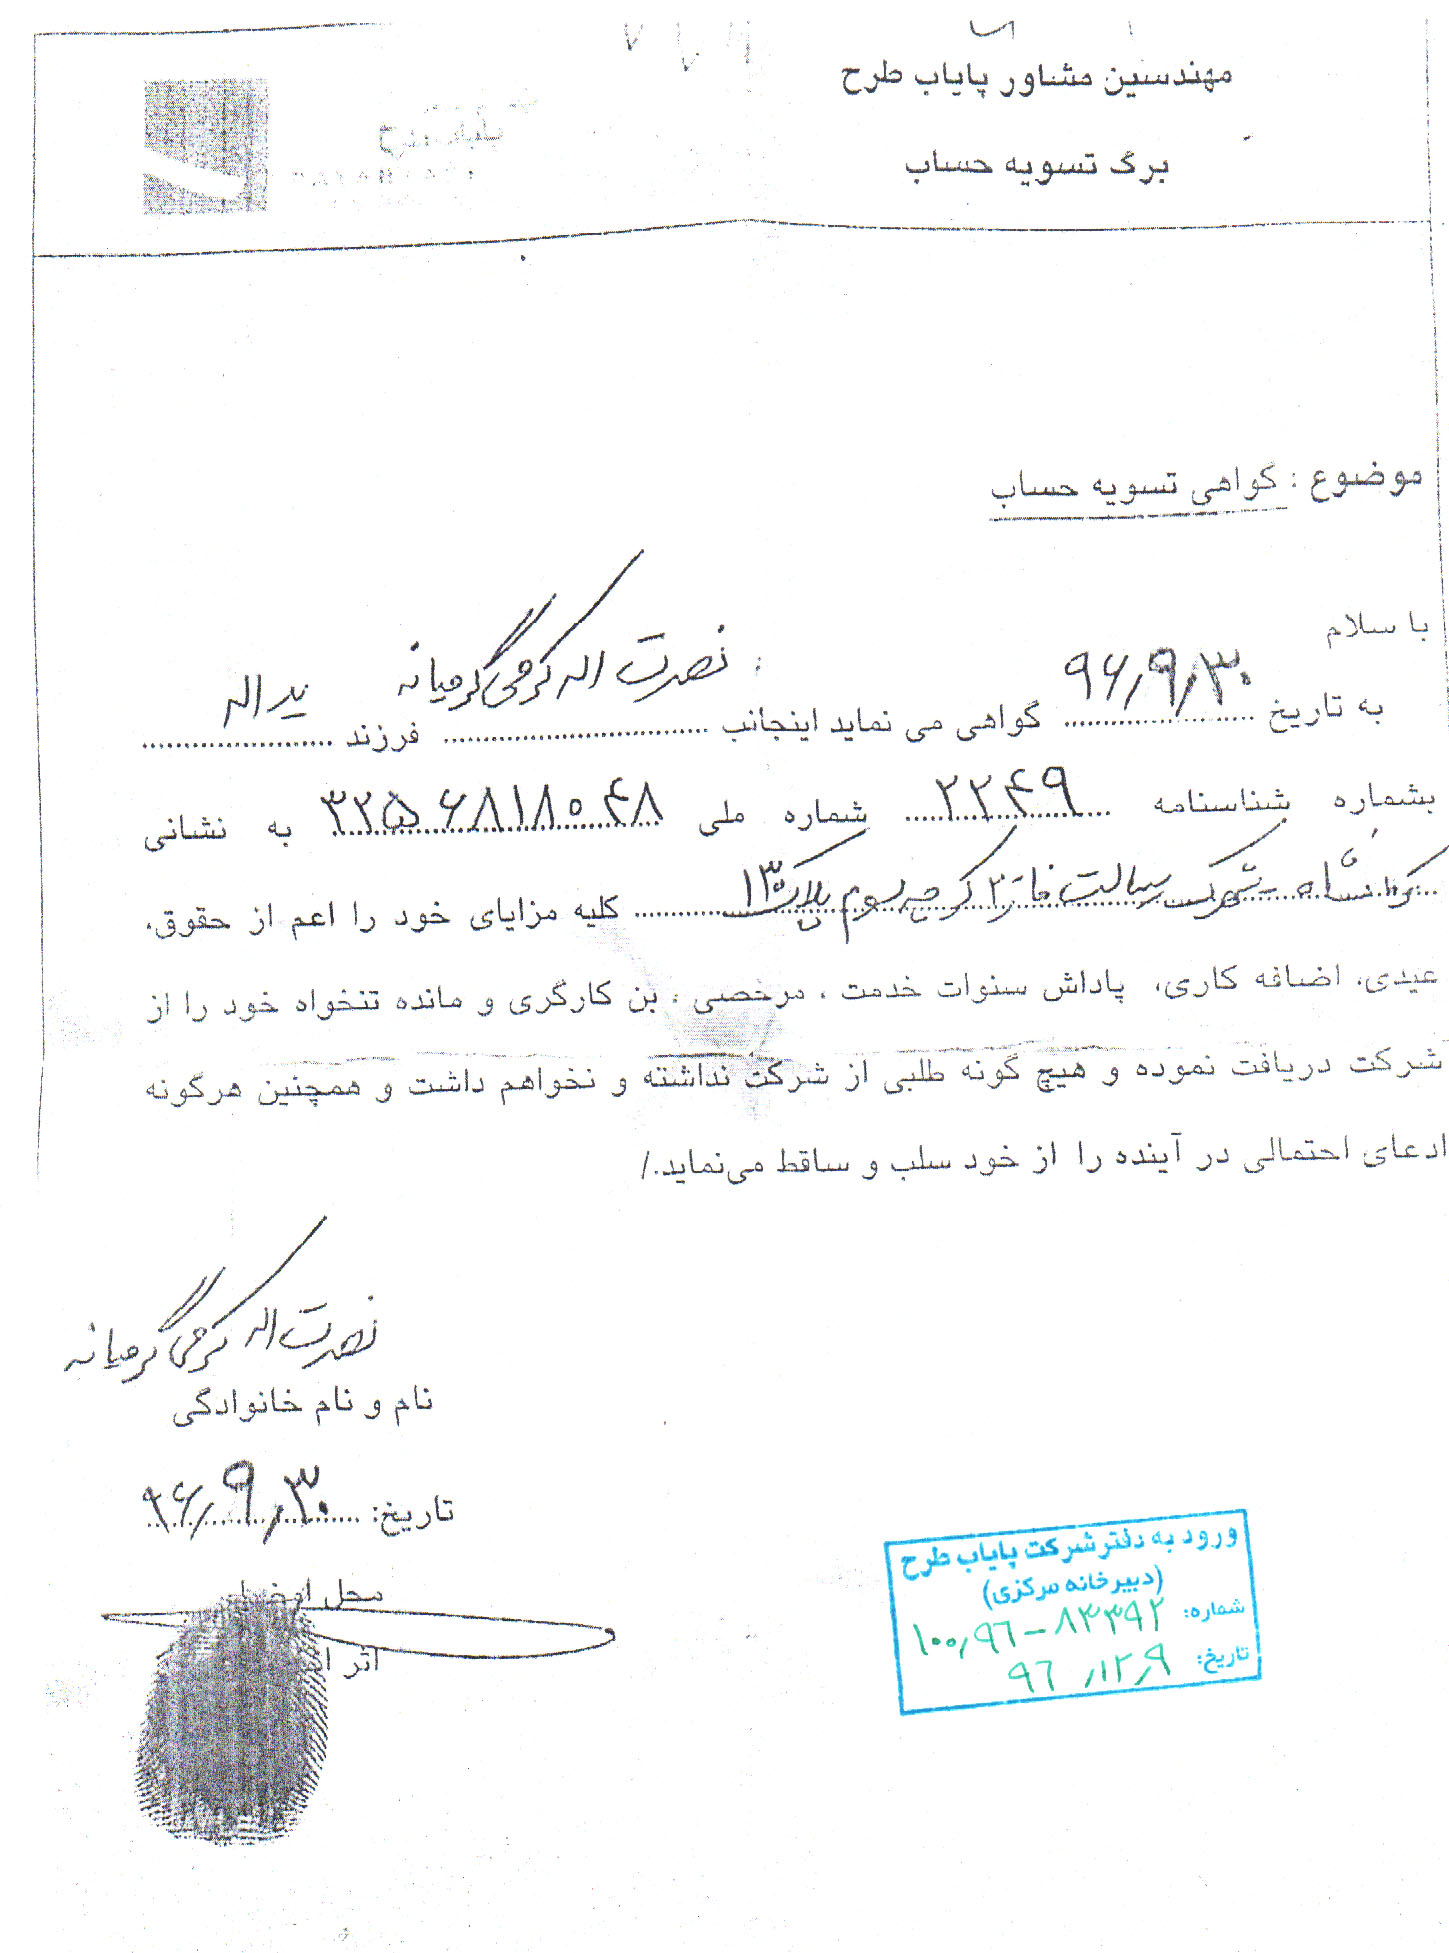 مهندسین مشاور پایاب طرح
برگ تسویه حساب
پایاب طرح
موضوع : گواهی تسویه حساب
با سلام
به تاریخ ۹۶/۹/۳۰ گواهی می نماید اینجانب نصرت اله کرمی گرمیانه فرزند یداله
بشماره شناسنامه ۲۲۴۹ شماره ملی ۳۲۵۶۸۱۸۰۴۸ به نشانی
کرمانشاه - شهرک رسالت فاز ۲ کوچه سوم پلاک ۱۳ کلیه مزایای خود را اعم از حقوق،
عیدی، اضافه کاری، پاداش سنوات خدمت ، مرخصی ، بن کارگری و مانده تنخواه خود را از
شرکت دریافت نموده و هیچ گونه طلبی از شرکت نداشته و نخواهم داشت و همچنین هرگونه
ادعای احتمالی در آینده را از خود سلب و ساقط می‌نماید./
نصرت اله کرمی گرمیانه
نام و نام خانوادگی
تاریخ: ۹۶/۹/۳۰
محل امضا
اثر
ورود به دفتر شرکت پایاب طرح
(دبیرخانه مرکزی)
شماره: ۱۰۰/۹۶-۸۳۳۹۲
تاریخ: ۹۶/۱۲/۹